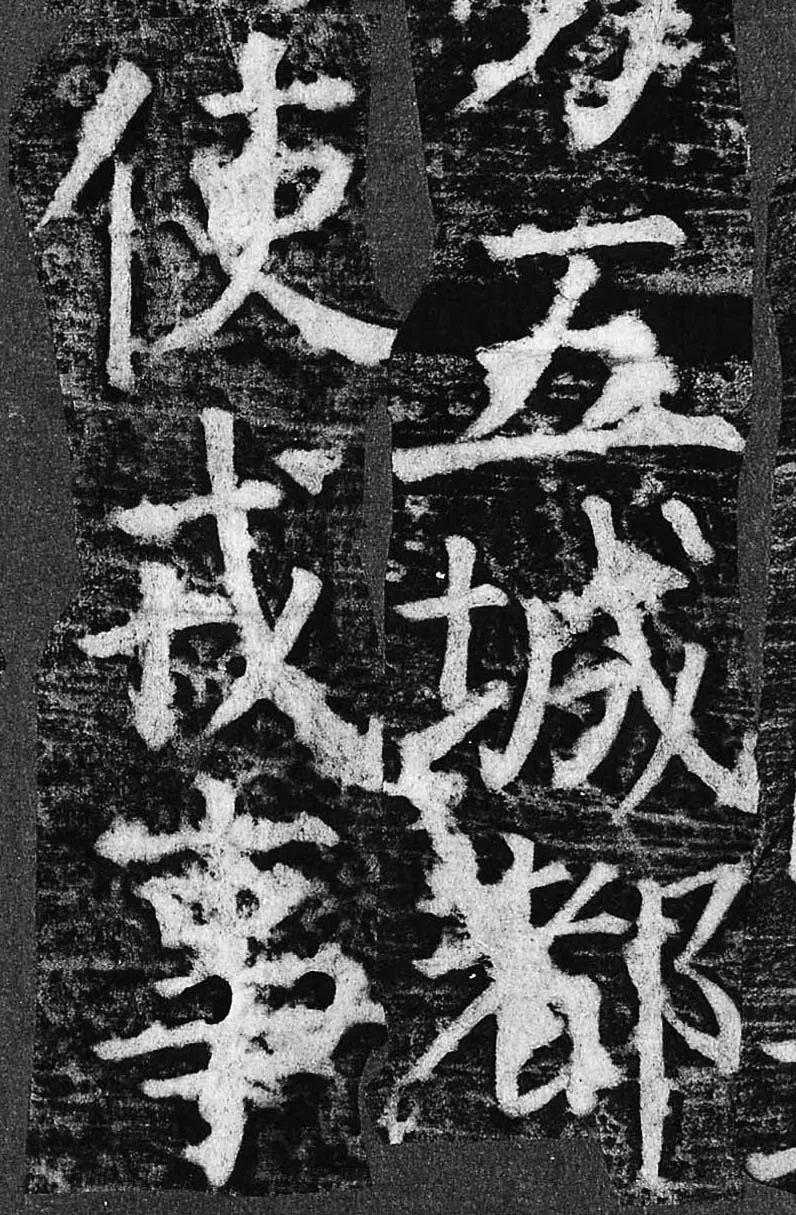 五城都
使戎事